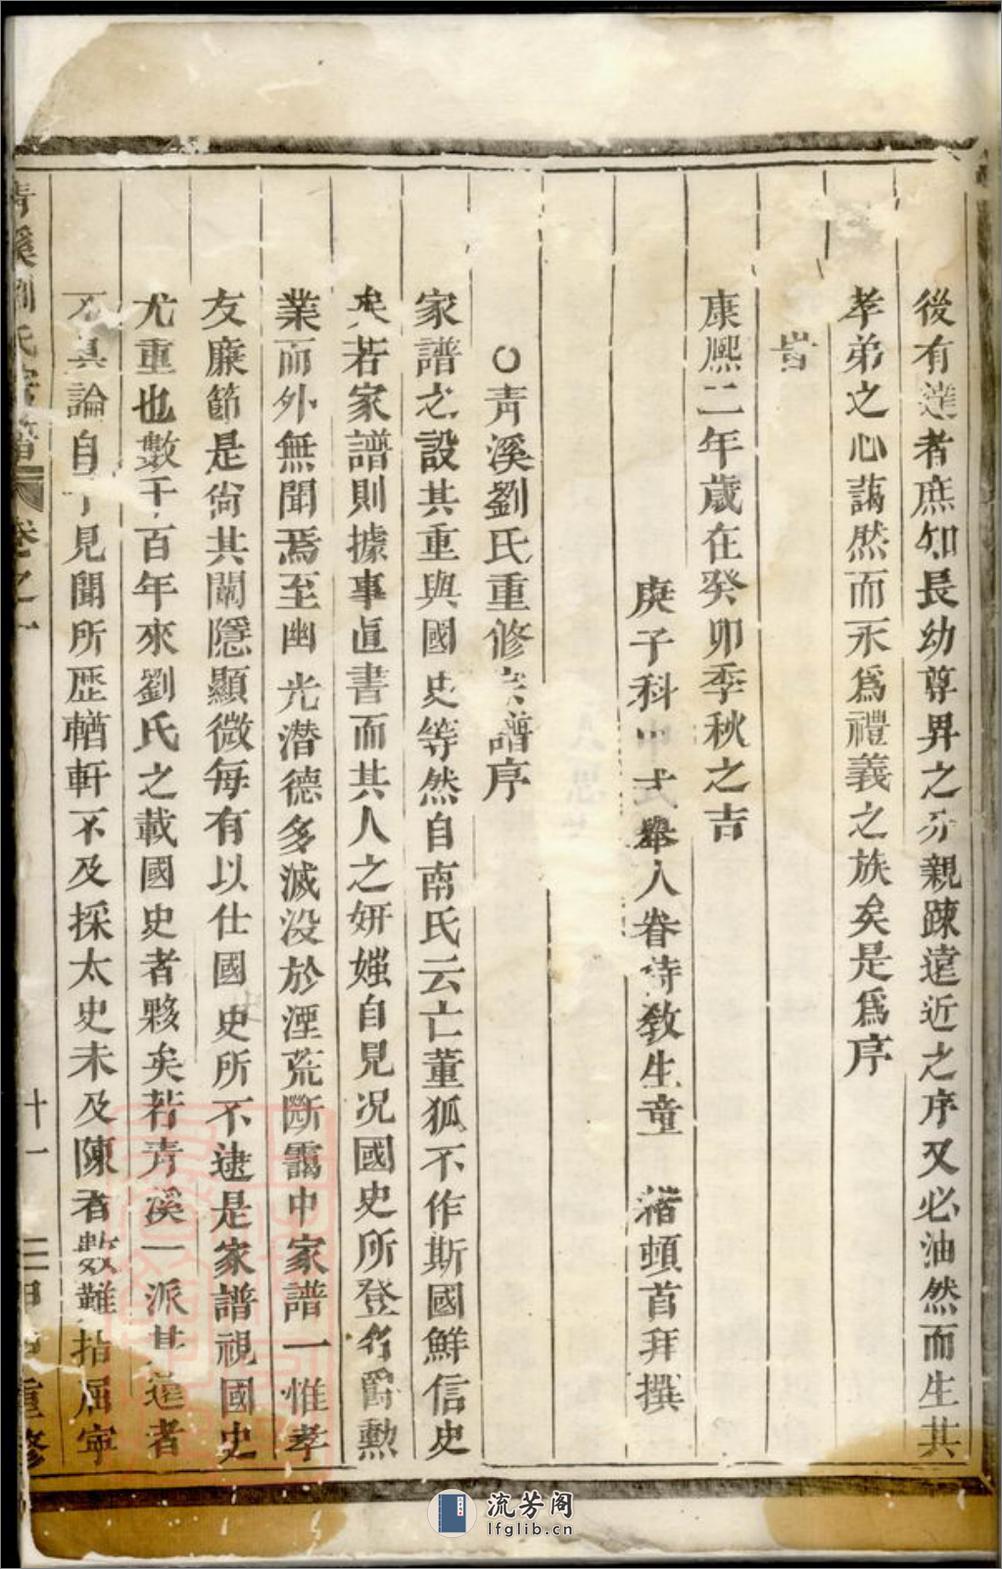 後有達者庶知長幼尊畀之分親踈遠近之序又必油然而生其
孝弟之心藹然而永爲禮義之族矣是爲序
旹
康熈二年歲在癸卯季秋之吉
庚子科中式舉人眷侍敎生童 楮頓首拜撰
○青溪劉氏重修宗譜序
家譜之設其重與國史等然自南氏云亡董狐不作斯國鮮信史
矣若家譜則據事直書而其人之妍媸自見况國史所登名爵勲
業而外無聞焉至幽光潜德多滅没於湮荒斷靄中家譜一惟孝
友廉節是尙其闡隱顯微每有以仕國史所不逮是家譜視國史
尤重也數千百年來劉氏之載國史者夥矣若青溪一派其達者
不具論自予見聞所歴輶軒不及採太史未及陳者數難指屈寜
青溪劉氏宗譜 卷之一 十一 三甲 重修
流芳阁
lfglib.cn